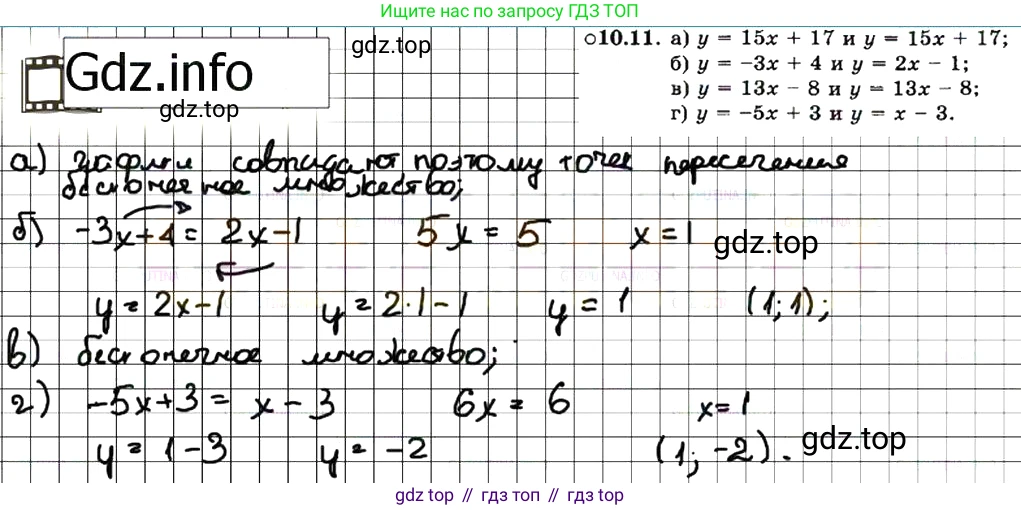 Ищите нас по запросу ГДЗ ТОП
Gdz.info
gdz.top
gdz.top
○10.11. а) y = 15x + 17 и y = 15x + 17;
б) y = -3x + 4 и y = 2x - 1;
в) y = 13x - 8 и y = 13x - 8;
г) y = -5x + 3 и y = x - 3.
а) графики совпадают поэтому точек пересечения
бесконечное множество;
б) -3x+4 = 2x-1 5x = 5 x = 1
gdz.top
y = 2x-1 y = 2·1-1 y = 1 (1; 1);
в) бесконечное множество;
г) -5x+3 = x-3 6x = 6 x=1
gdz.top
y = 1-3 y = -2 (1; -2).
gdz топ // гдз топ // gdz.top